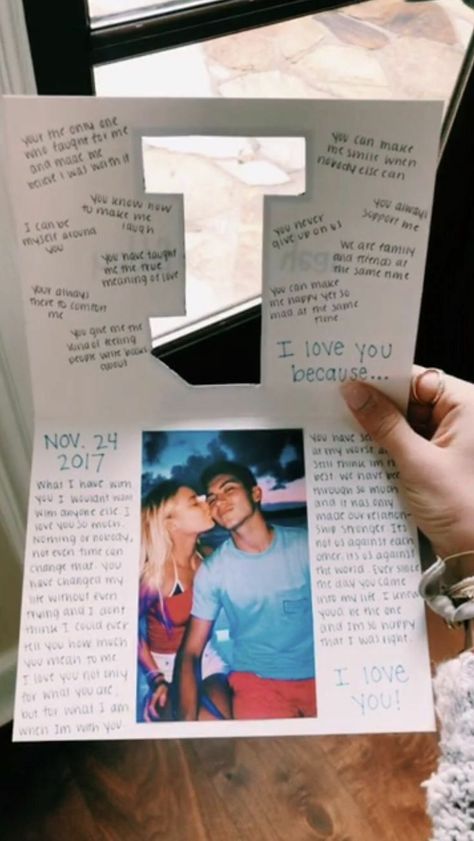 your the only one
who fought for me
and made me
believe I was worth it
you know how
to make me
laugh
I can be
myself around
you
you have taught
me the true
meaning of love
your always
there to comfort
me
you give me the
kind of feeling
people write books
about
you can make
me smile when
nobody else can
you always
support me
you never
give up on us
we are family
and friends at
the same time
you can make
me happy yet so
mad at the same
time
I love you
because...
NOV. 24
2017
What I have with
you I wouldnt want
with anyone else. I
love you so much.
Nothing or nobody,
not even time can
change that. you
have changed my
life without even
trying and I dont
think I could ever
tell you how much
you mean to me.
I love you not only
for what you are,
but for what I am
when Im with you
you have
at my worst
still think im
best. we have been
through so much
and it has only
made our relation-
ship stronger. Its
not us against each
other, its us against
the world. Ever since
the day you came
into my life I knew
youd be the one
and Im so happy
that I was right.
I love
you!